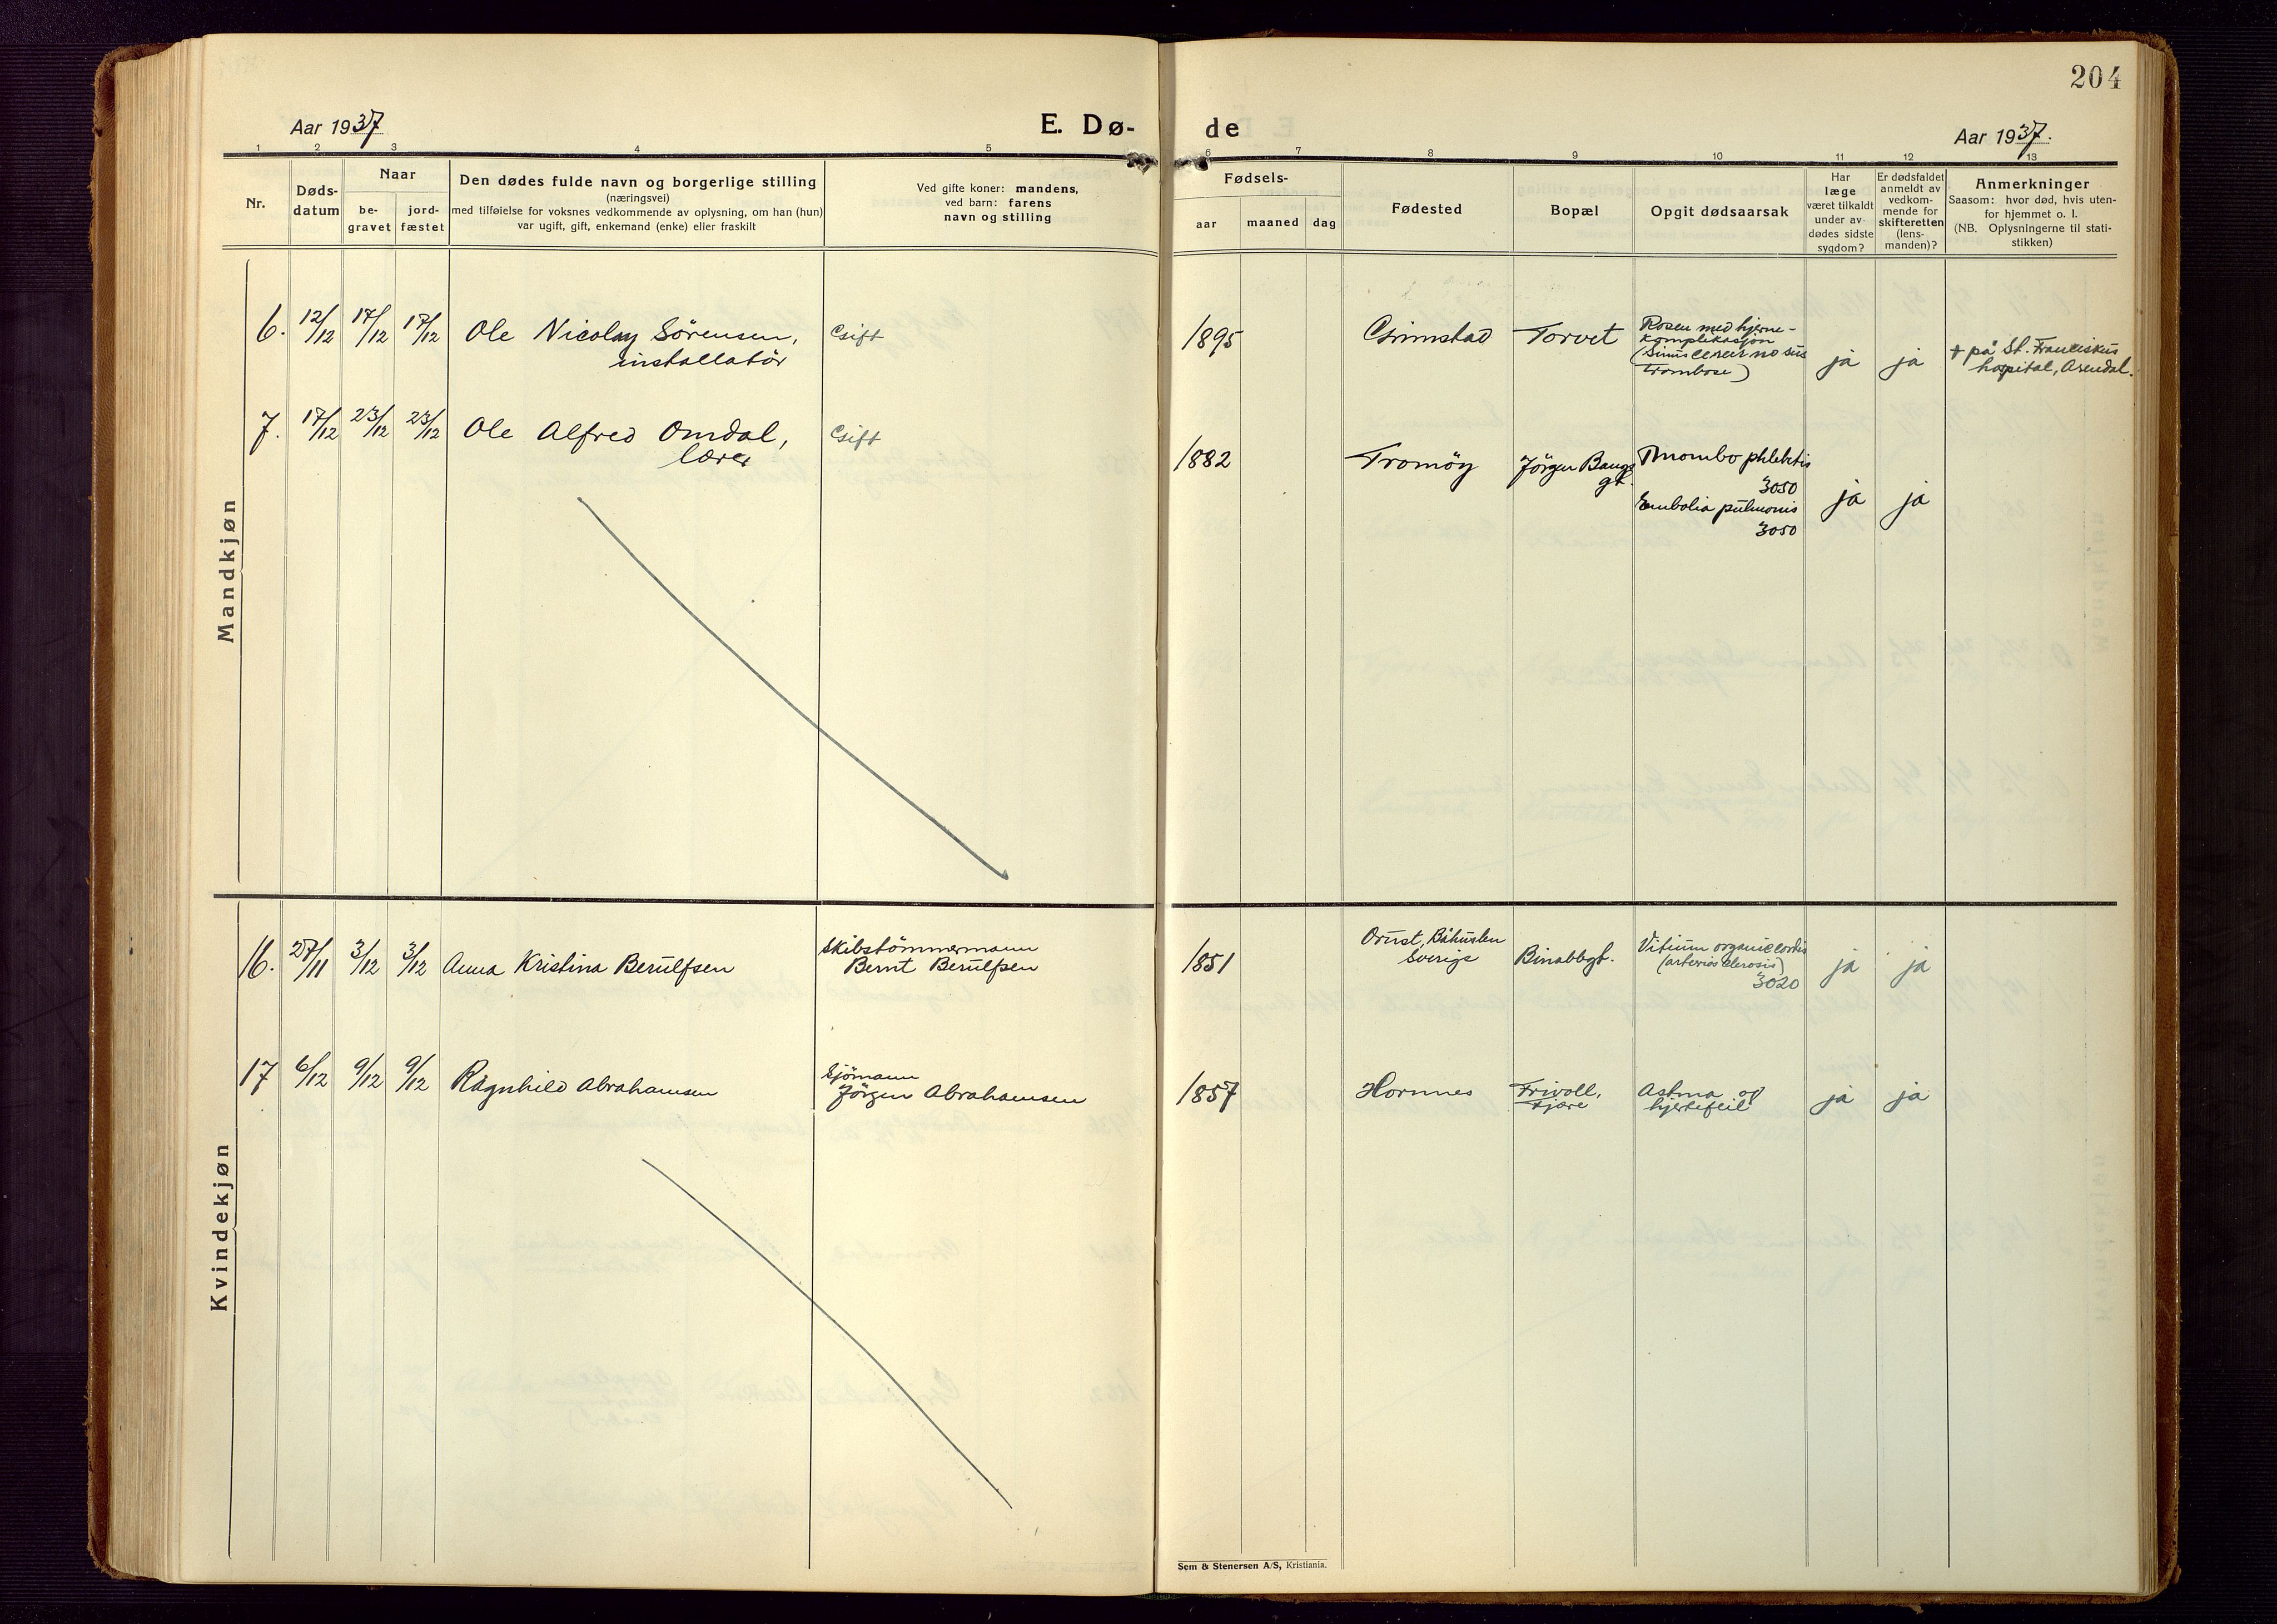 204
Aar 1937
E. Dø-
de
Aar 1937.
1 2 3 4 5 6 7 8 9 10 11 12 13
Nr.
Døds-
datum
Naar
be-
gravet
jord-
fæstet
Den dødes fulde navn og borgerlige stilling
(næringsvei)
med tilføielse for voksnes vedkommende av oplysning, om han (hun)
var ugift, gift, enkemand (enke) eller fraskilt
Ved gifte koner: mandens,
ved barn: farens
navn og stilling
Fødsels-
aar
maaned
dag
Fødested
Bopæl
Opgit dødsaarsak
Har
læge
været tilkaldt
under av-
dødes sidste
sygdom?
Er dødsfaldet
anmeldt av
vedkom-
mende for
skifteretten
(lens-
manden)?
Anmerkninger
Saasom: hvor død, hvis uten-
for hjemmet o. l.
(NB. Oplysningerne til stati-
stikken)
Mandkjøn
6. 12/12 17/12 17/12 Ole Nicolay Sörensen,
installatör
Gift
1895
Grimstad
Torvet
Rosen med hjerne-
komplikasjon
(Sinus
trombose)
ja
ja
+ på St. Franciskus
hospital, Arendal.
7. 17/12 23/12 23/12 Ole Alfred Omdal,
lærer
Gift
1882
Tromöy
Jörgen Bangs
gt.
Thrombo phlebitis
3050
Embolia pulmonis
3050
ja
ja
Kvindekjøn
16. 27/11 3/12 3/12 Anna Kristina Berulfsen
Skibstömmermann
Bernt Berulfsen
1851
Orust, Båhuslen
Sverige
Binabbgt.
Vitium organic cordis
(arteriosclerosis)
3020
ja
ja
17 6/12 9/12 9/12 Ragnhild Abrahamsen
Sjömann
Jörgen Abrahamsen
1857
Hornnes
Frivoll,
Fjære
Astma og
hjertefeil
ja
ja
Sem & Stenersen A/S, Kristiania.